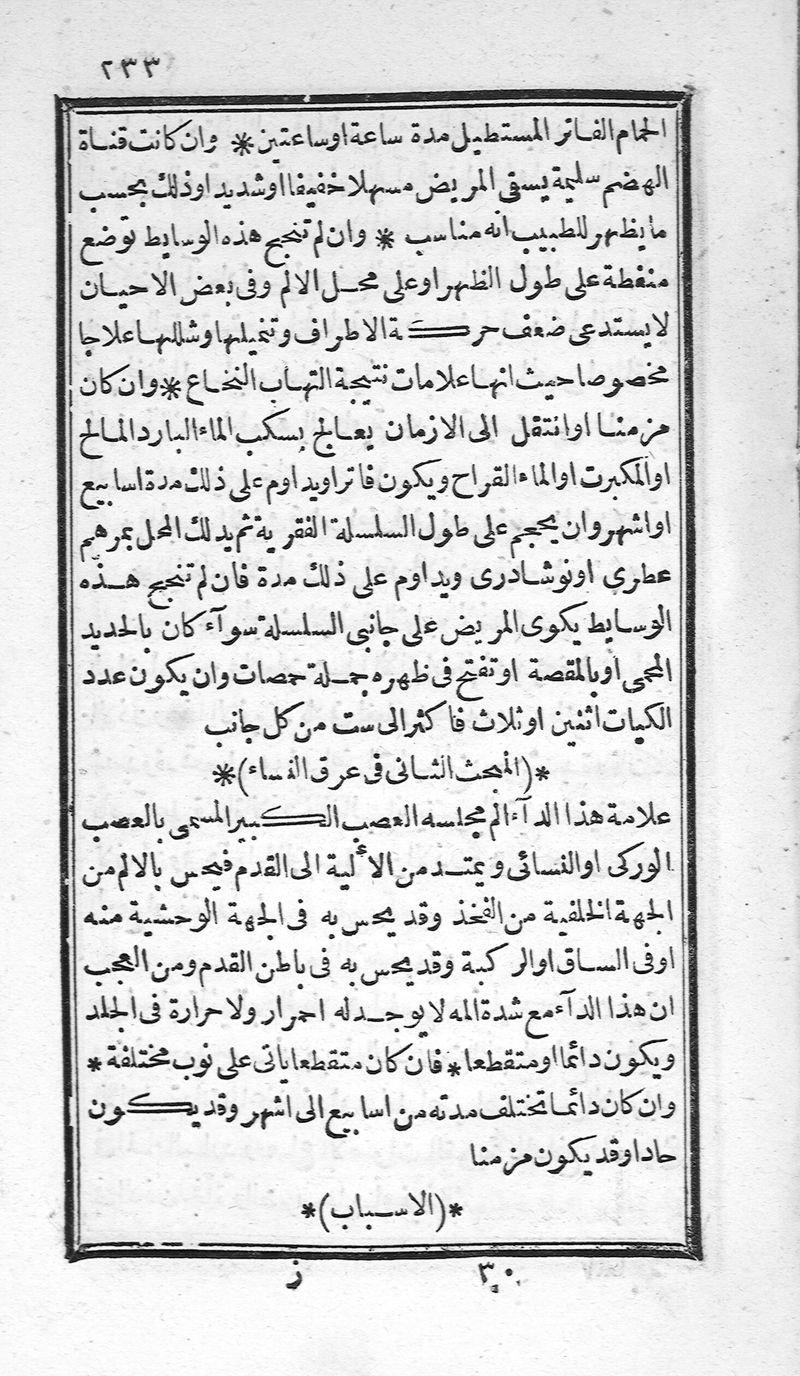 ٢٣٣
الحمام الفاتر المستطيل مدة ساعة اوساعتين * وان كانت قناة
الهضم سليمة يسقى المريض مسهلا خفيفا اوشديد اوذلك بحسب
ما يظهر للطبيب انه مناسب * وان لم تنجح هذه الوسايط توضع
منفطة على طول الظهر اوعلى محل الالم وفى بعض الاحيان
لايستدعى ضعف حركة الاطراف وتنميلها وشللها علاجا
مخصوصا حيث انها علامات نتيجة التهاب النخاع * وان كان
مزمنا اوانتقل الى الازمان يعالج بسكب الماء البارد المالح
اوالمكبرت اوالماء القراح ويكون فاترا ويداوم على ذلك مدة اسابيع
اواشهر وان يحجم على طول السلسلة الفقرية ثم يدلك المحل بمرهم
عطرى اونوشادرى ويداوم على ذلك مدة فان لم تنجح هذه
الوسايط يكوى المريض على جانبى السلسلة سوآء كان بالحديد
المحمى اوبالمقصة اوتفتح فى ظهره جملة حمصات وان يكون عدد
الكيات اثنين اوثلاث فاكثر الى ست من كل جانب
*(المبحث الثانى فى عرق النساء)*
علامة هذا الدآء الم مجلسه العصب الكبير المسمى بالعصب
الوركى اوالنسائى ويمتد من الألية الى القدم فيحس بالالم من
الجهة الخلفية من الفخذ وقد يحس به فى الجهة الوحشية منه
اوفى الساق اوالركبة وقد يحس به فى باطن القدم ومن العجب
ان هذا الدآء مع شدة المه لا يوجد له احمرار ولا حرارة فى الجلد
ويكون دائما اومتقطعا * فان كان متقطعا ياتى على نوب مختلفة *
وان كان دائما تختلف مدته من اسابيع الى اشهر وقد يكون
حادا وقد يكون مزمنا
*(الاسباب)*
٣٠ ز